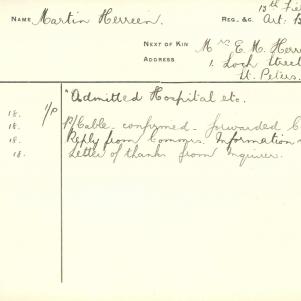 13th Fie
NAME Martin Herreen. REG. &C. Art. B
NEXT OF KIN Mrs E. M. Herr
ADDRESS 1, Loch Street
St. Peters.
"Admitted Hospital etc.
18. P/Cable confirmed - forwarded C
18. Reply from Commrs. Information
18. Letter of thanks from Inquirer.